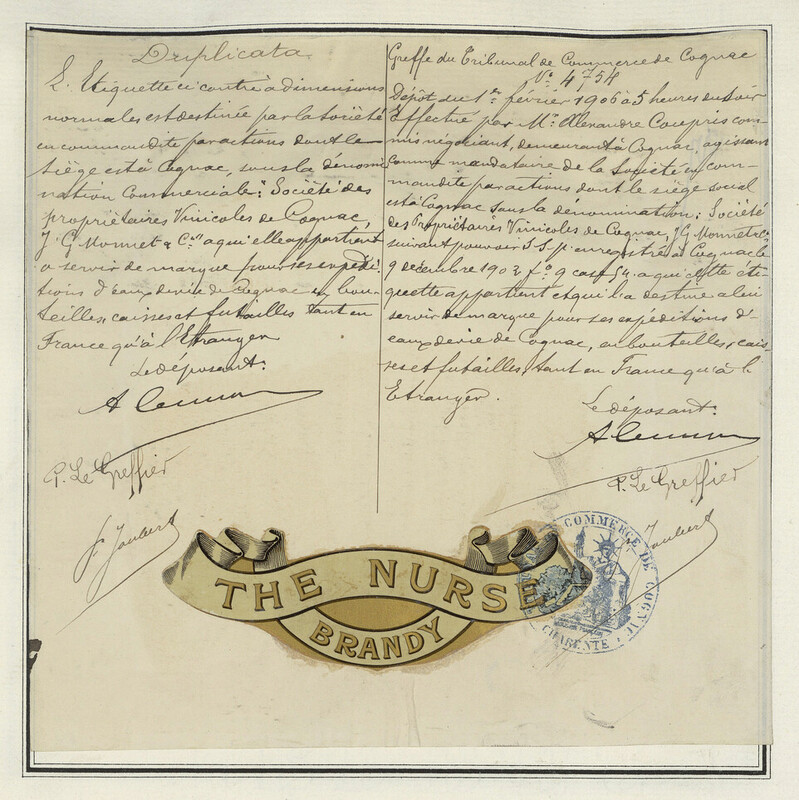 Duplicata
L'Etiquette ci contre à dimensions
normales est destinée par la Société
en commandite par actions dont le
siège est à Cognac, sous la dénomi
nation Commerciale: Société des
propriétaires Vinicoles de Cognac,
J. G Monnet & Cie a qui elle appartient
a servir de marque pour ses expédi
tions d'eaux de vie de Cognac en bou-
teilles, caisses et futailles tant en
France qu'à l'Etranger
Le déposant.
P. Le Greffier
F Joubert
Greffe du Tribunal de Commerce de Cognac
No 4754
Dépôt du 1er février 1906 à 5 heures du soir
Effectué par Mr Alexandre Coupris com-
mis négociant, demeurant à Cognac, agissant
comme mandataire de la Société en com-
mandite par actions dont le siège social
est à Cognac sous la dénomination: Société
des Propriétaires Vinicoles de Cognac, J G Monnet & Cie
suivant pouvoir S.S.p. enregistré à Cognac le
9 décembre 1903 fo 9 case 54. a qui cette éti-
quette appartient et qui l'a destine a lui
servir de marque pour ses expéditions d'-
eaux de vie de Cognac, en bouteilles, cais-
ses et futailles, tant en France qu'à l'
Etranger.
Le déposant.
P. Le Greffier
Joubert
THE NURSE
BRANDY
COMMERCE DE COGNAC
CHARENTE